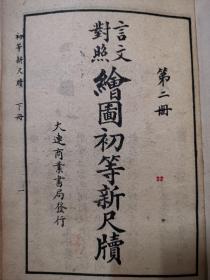 第二冊
言文
對照
繪圖初等新尺牘
大連商業書局發行
初等新尺牘 下冊
一